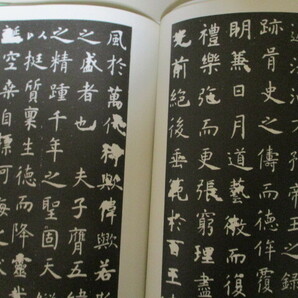 之錄
跡胥史之儔而德侔覆
明兼日月道藝微而
禮樂弛而更張窮理盡
光前絕後垂範於百王
風於萬代猗歟偉歟若
之盛者也夫子膺五
之精踵千年之聖固天
以挺質稟生德而降
空桑自河海之